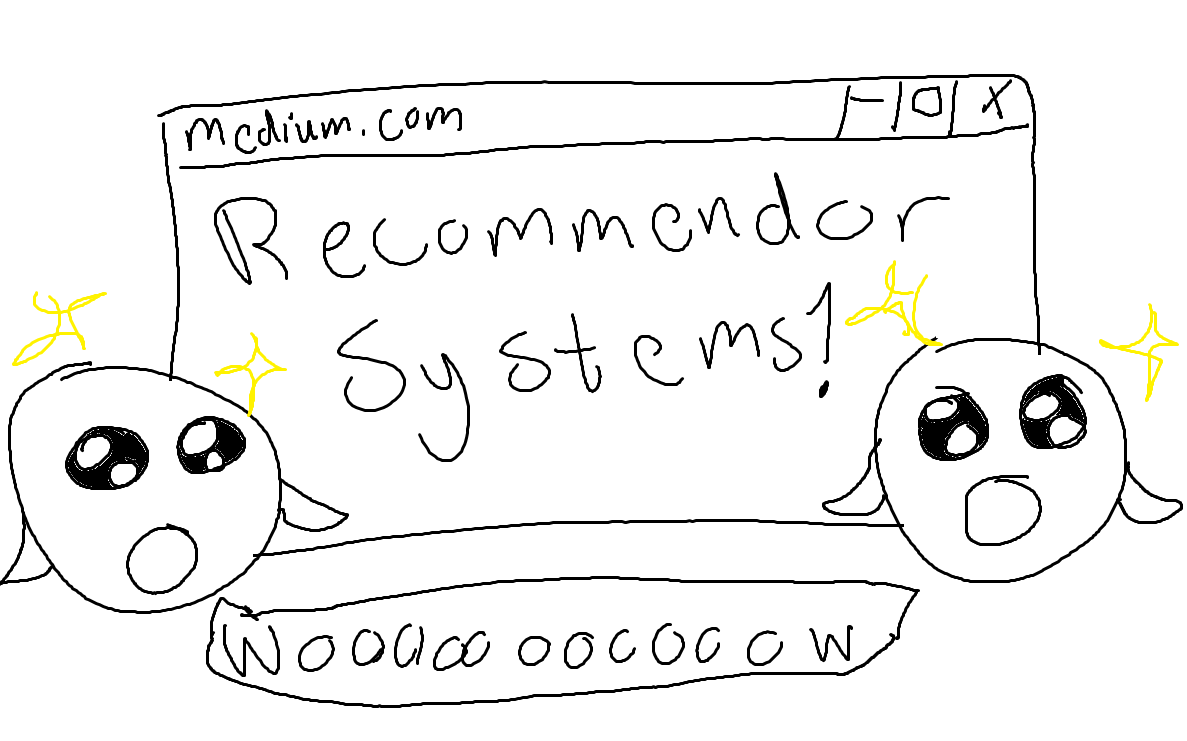 medium.com
Recommendor
Systems!
Wooooooooooow